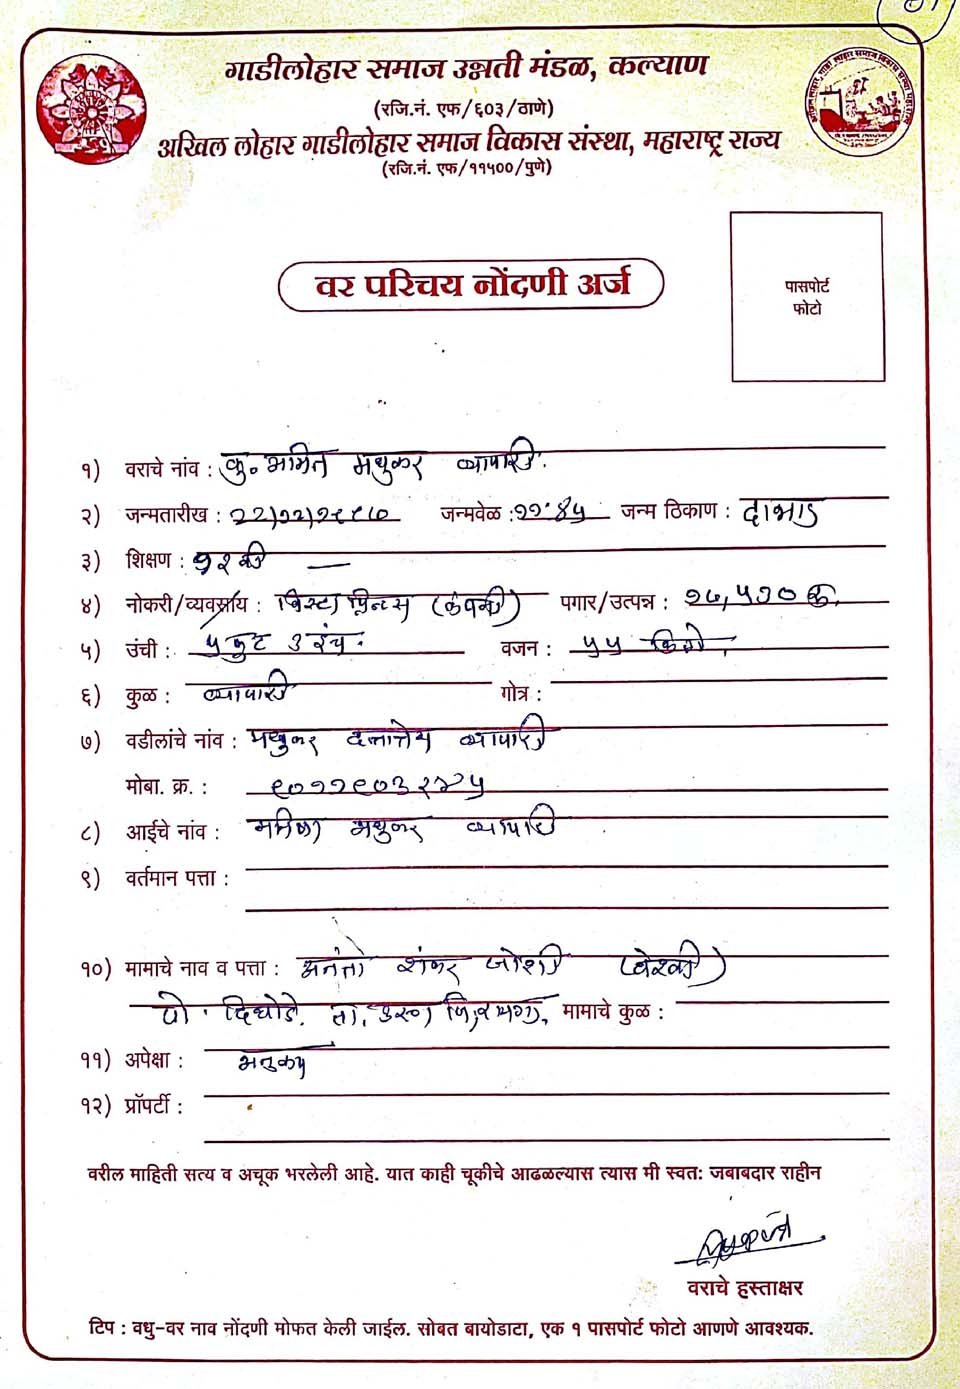 गाडीलोहार समाज उन्नती मंडळ, कल्याण
(रजि.नं. एफ/६०३/ठाणे)
अखिल लोहार गाडीलोहार समाज विकास संस्था, महाराष्ट्र राज्य
(रजि.नं. एफ/११५००/पुणे)
वर परिचय नोंदणी अर्ज
पासपोर्ट
फोटो
१) वराचे नांव : कु. अमित मधुकर व्यापारी.
२) जन्मतारीख : २२/१२/१९९७ जन्मवेळ : ११:४५ जन्म ठिकाण : दाभाड
३) शिक्षण : १२वी —
४) नोकरी/व्यवसाय : विस्टा प्रिन्टस (कंपनी) पगार/उत्पन्न : १७,५०० रु.
५) उंची : ५ फुट ३ इंच. वजन : ५५ किलो.
६) कुळ : व्यापारी गोत्र :
७) वडीलांचे नांव : मधुकर दत्तात्रेय व्यापारी
मोबा. क्र. :
८) आईचे नांव : मधुकर व्यापारी
९) वर्तमान पत्ता :
१०) मामाचे नाव व पत्ता : अनंता शंकर जोशी
पो. दिघोडे. ता. उरण जि. रायगड, मामाचे कुळ :
११) अपेक्षा : अनुरूप
१२) प्रॉपर्टी :
वरील माहिती सत्य व अचूक भरलेली आहे. यात काही चूकीचे आढळल्यास त्यास मी स्वत: जबाबदार राहीन
वराचे हस्ताक्षर
टिप : वधु-वर नाव नोंदणी मोफत केली जाईल. सोबत बायोडाटा, एक १ पासपोर्ट फोटो आणणे आवश्यक.